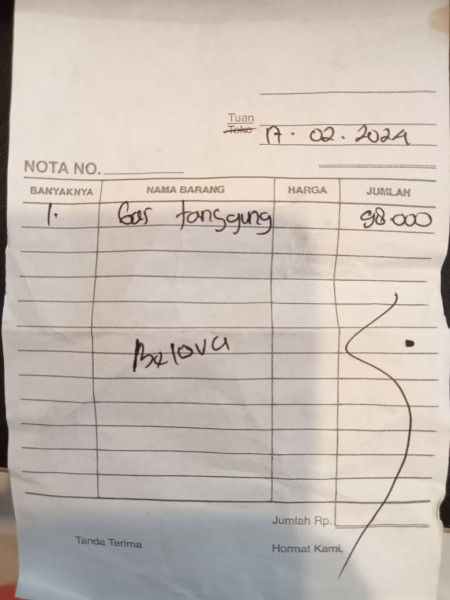 Tuan
Toko 17 . 02 . 2024
NOTA NO.
BANYAKNYA NAMA BARANG HARGA JUMLAH
1. Gas tanggung 98.000
Belova
Jumlah Rp.
Tanda Terima Hormat Kami,